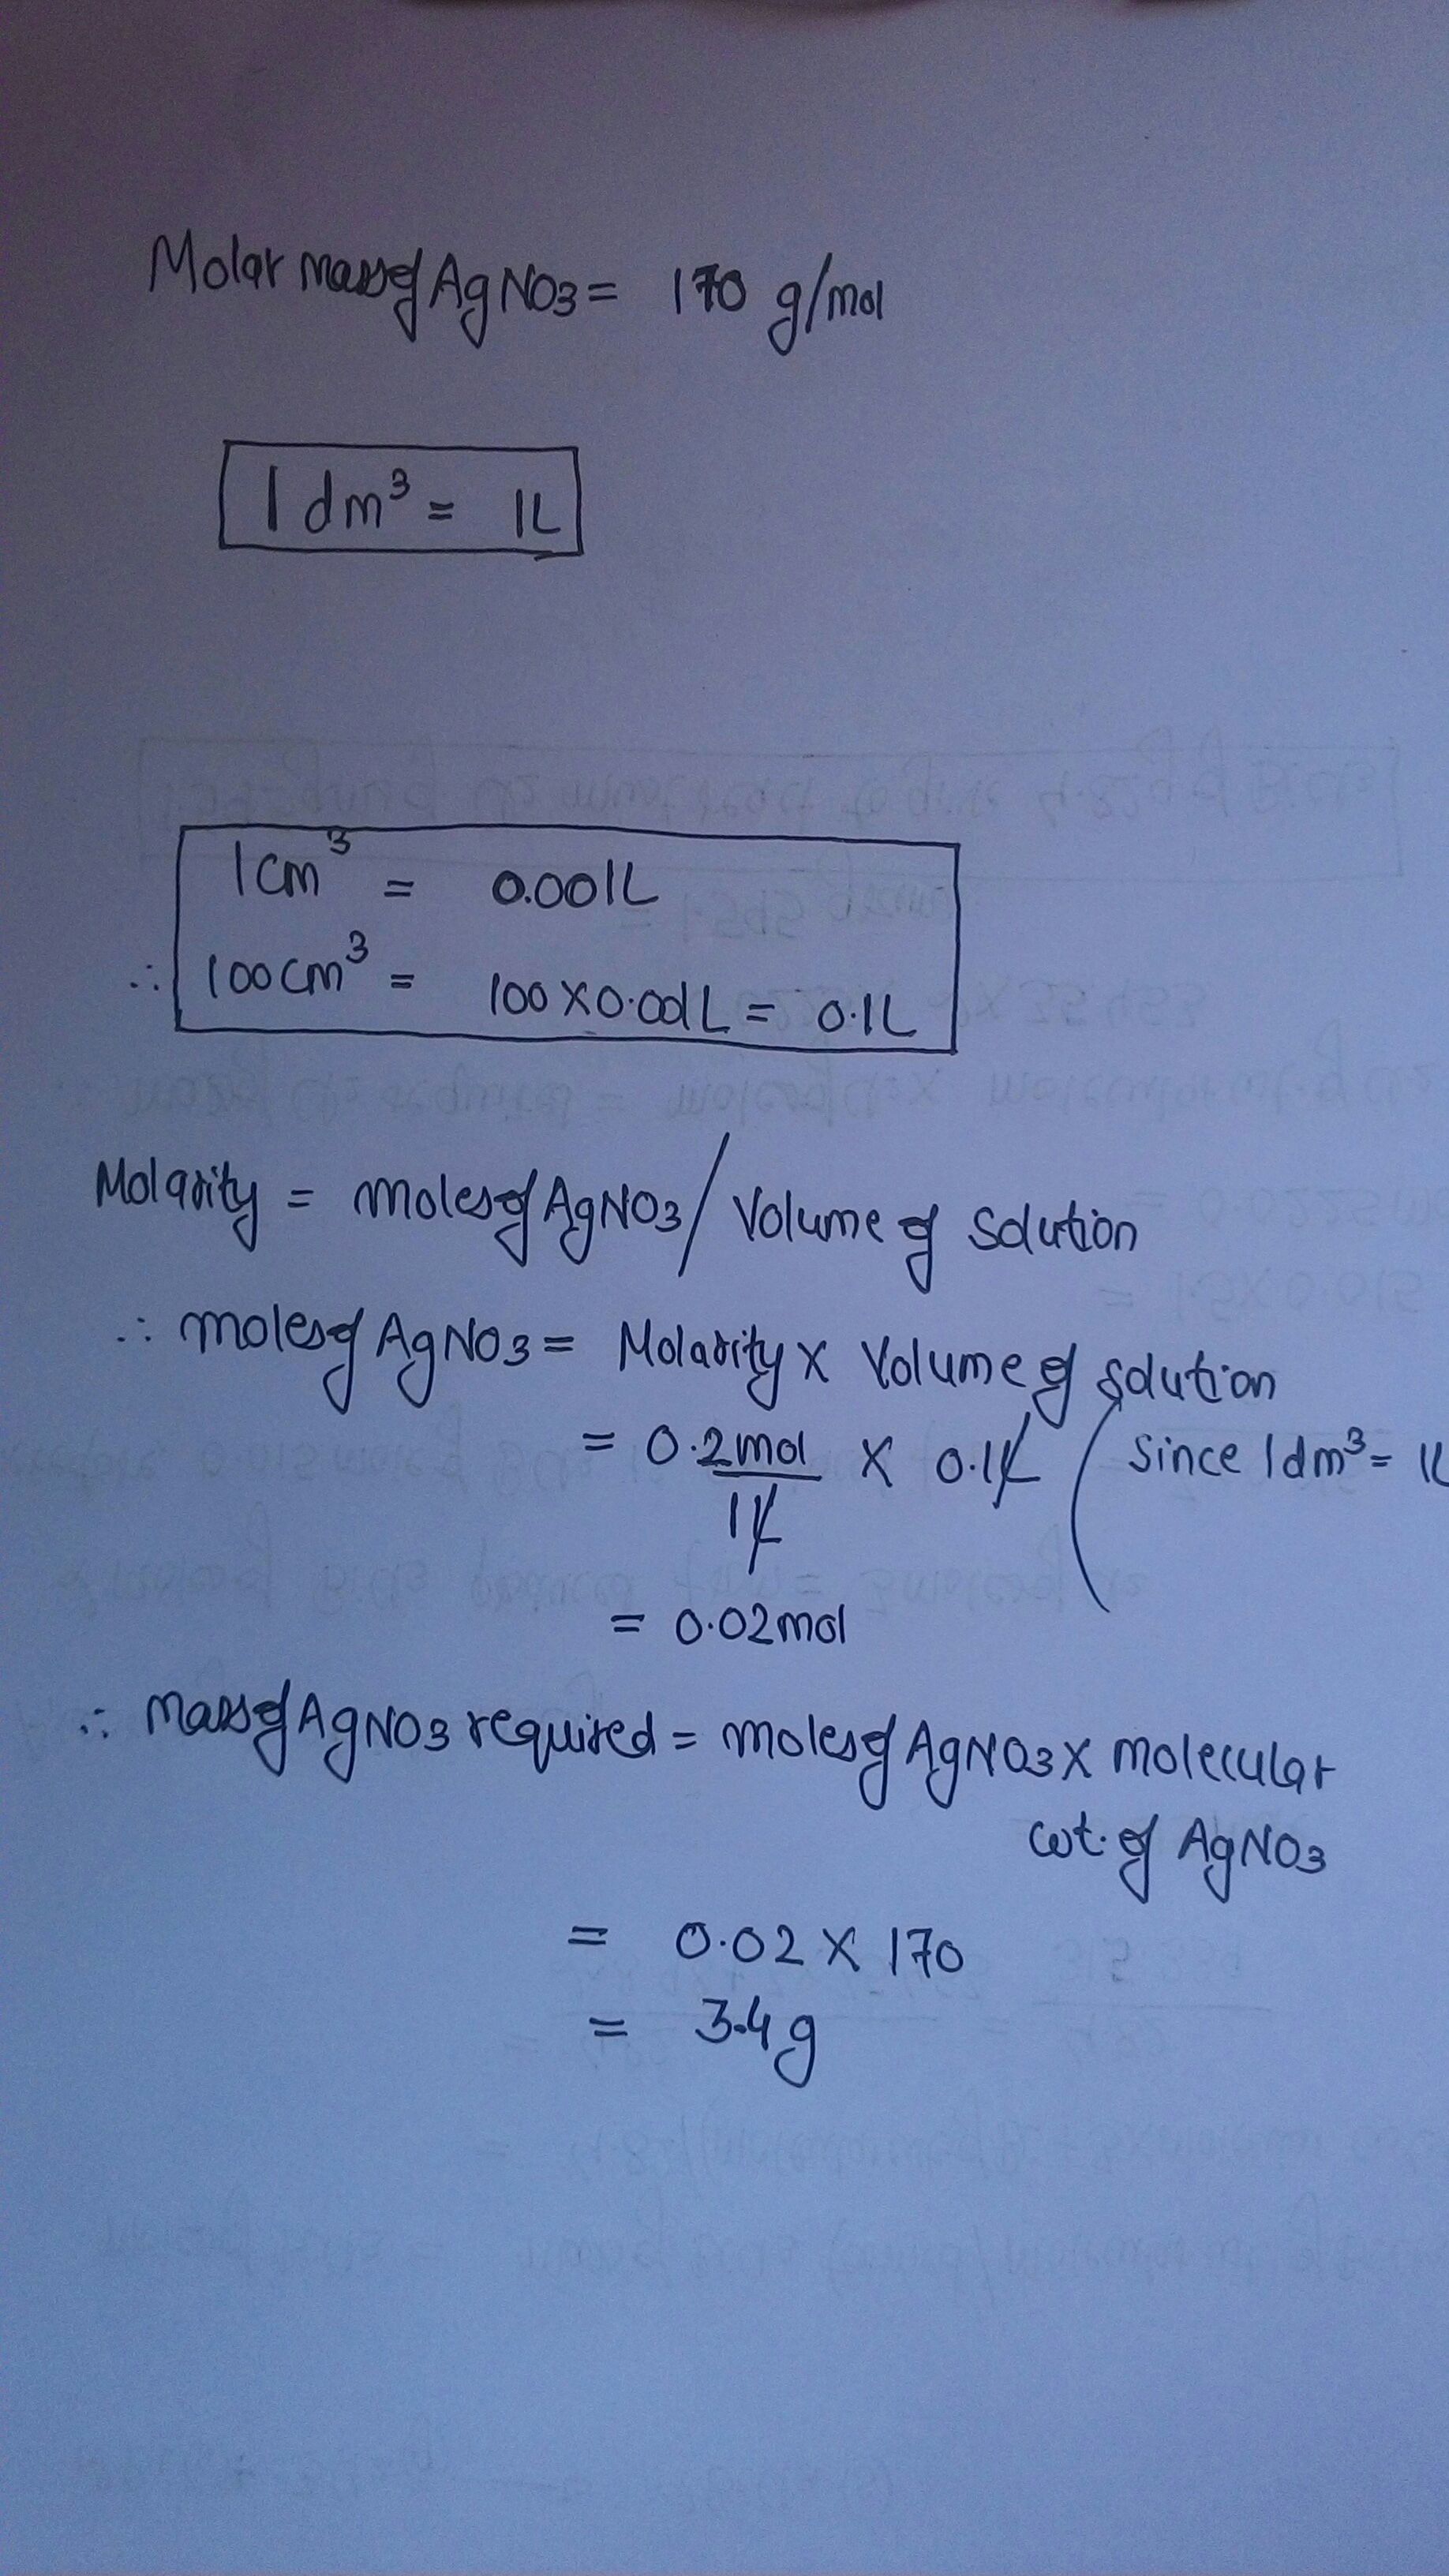 Molar mass of AgNO3 = 170 g/mol
1 dm³ = 1L
1cm³ = 0.001L
∴ 100cm³ = 100 x 0.001L = 0.1L
Molarity = moles of AgNO3 / Volume of solution
∴ moles of AgNO3 = Molarity x Volume of solution
= 0.2mol / 1L x 0.1L ( since 1dm³ = 1L
= 0.02mol
∴ mass of AgNO3 required = moles of AgNO3 x molecular
wt. of AgNO3
= 0.02 x 170
= 3.4g